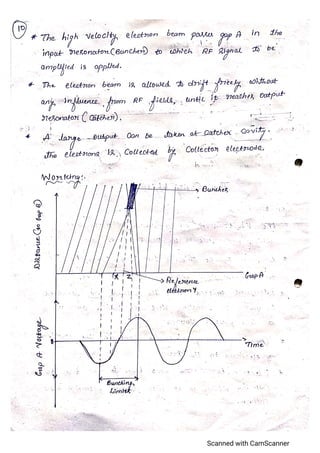 10
* The high Velocity electron beam passes gap A in the
input resonator (Buncher) to which RF signal to be
amplified is applied.
* The electron beam is allowed to drift freely without
any influence from RF fields, until it reaches output
resonator (Catcher).
* A large output can be taken at catcher Cavity.
The electrons is Collected by Collector electrode.
Working:
Buncher
Distance (to Gap B)
x
z
Gap A
Reference
electron y
Gap A Voltage
0
Time
Bunching
Limits
Scanned with CamScanner